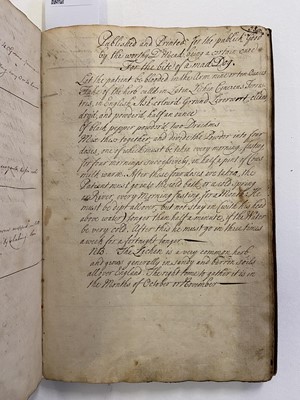 Published and Printed for the publick good
by the worthy Dr Mead, being a certain cure
For the bite of a mad Dog.
Let the patient be blooded in the Arm nine or ten Ounces
Take of the herb call'd in Latin Lichen Cinereus Terres-
tris, in English, Ash colour'd Ground Liverwort, clean
dryd, and powder'd half an ounce
Of black pepper powder'd two Drachms
Mix these together and divide the Powder into four
doses, one of which must be taken every morning, fasting
for four mornings successively, in half a pint of Cows
milk warm. After these four doses are taken, the
Patient must go into the cold bath, or a cold spring
or River, every Morning fasting, for a Month. He
must be dipt all over, but not stay in (with his head
above water) longer than half a minute, if the Water
be very cold. After this he must go in three times
a week for a fortnight longer
NB. The Lichen is a very common herb
and grows generally in sandy and barren soils
all over England. The right time to gather it is in
the Months of October or November